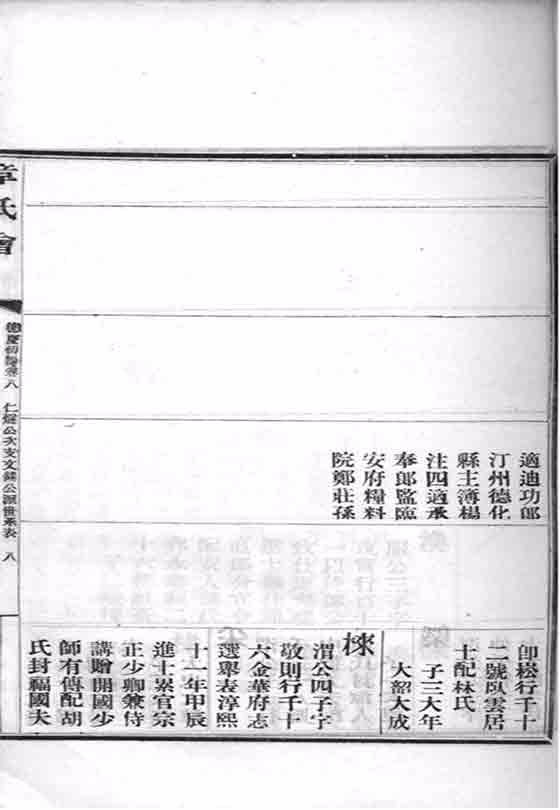 適迪功郎
汀州德化
縣主簿楊
注四適承
奉郎監臨
安府糧料
院鄭莊孫
卽松行千十
二號臥雲居
士配林氏
子三大年
大韶大成
棶
渭公四子字
敬則行千十
六金華府志
選舉表淳熙
十一年甲辰
進士累官宗
正少卿兼侍
講贈開國少
師有傳配胡
氏封福國夫
章氏會
德慶初譜卷八
仁燧公次支文錫公派世系表
八